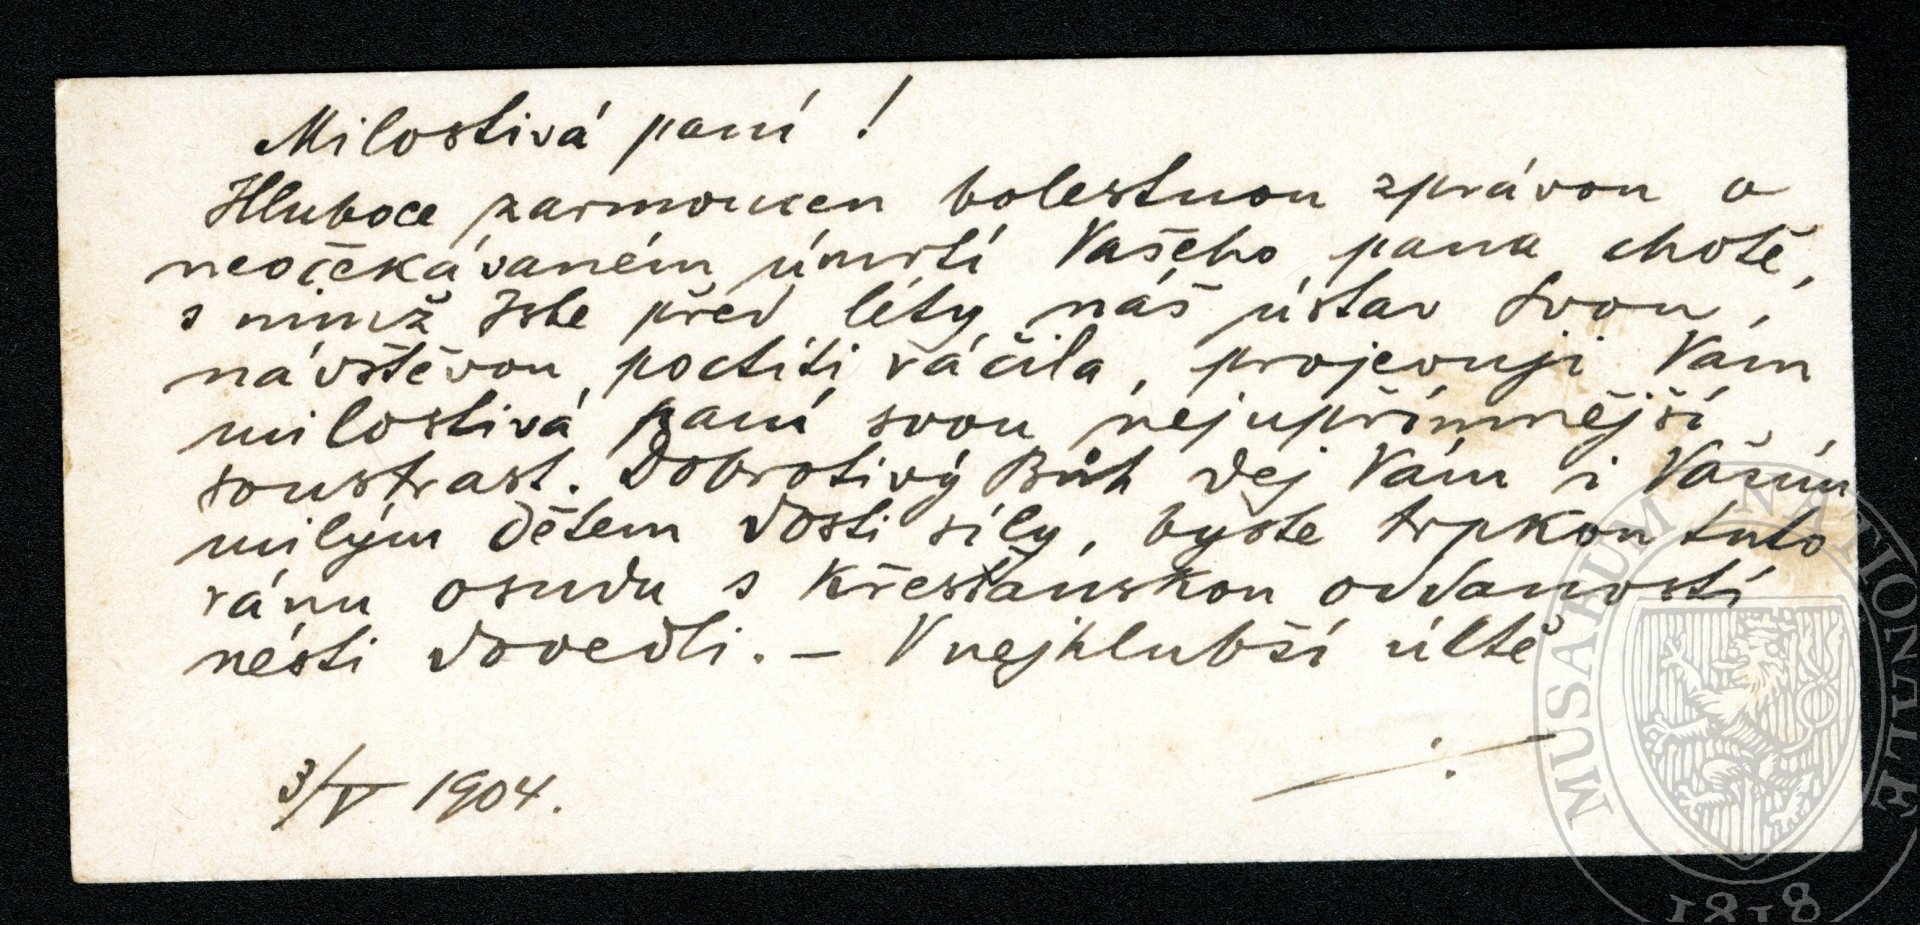 Milostivá paní!
Hluboce zarmoucen bolestnou zprávou o
neočekávaném úmrtí Vašeho pana chotě,
s nímž Jste před léty náš ústav svou
návštěvou poctíti ráčila, projevuji Vám
milostivá paní svou nejupřímnější
soustrast. Dobrotivý Bůh dej Vám i Vaším
milým dětem dosti síly, byste trpkou tuto
ránu osudu s křesťanskou oddaností
nésti dovedli. – V nejhlubší úctě
3/V 1904.
MUSAEUM NATIONALE
1818